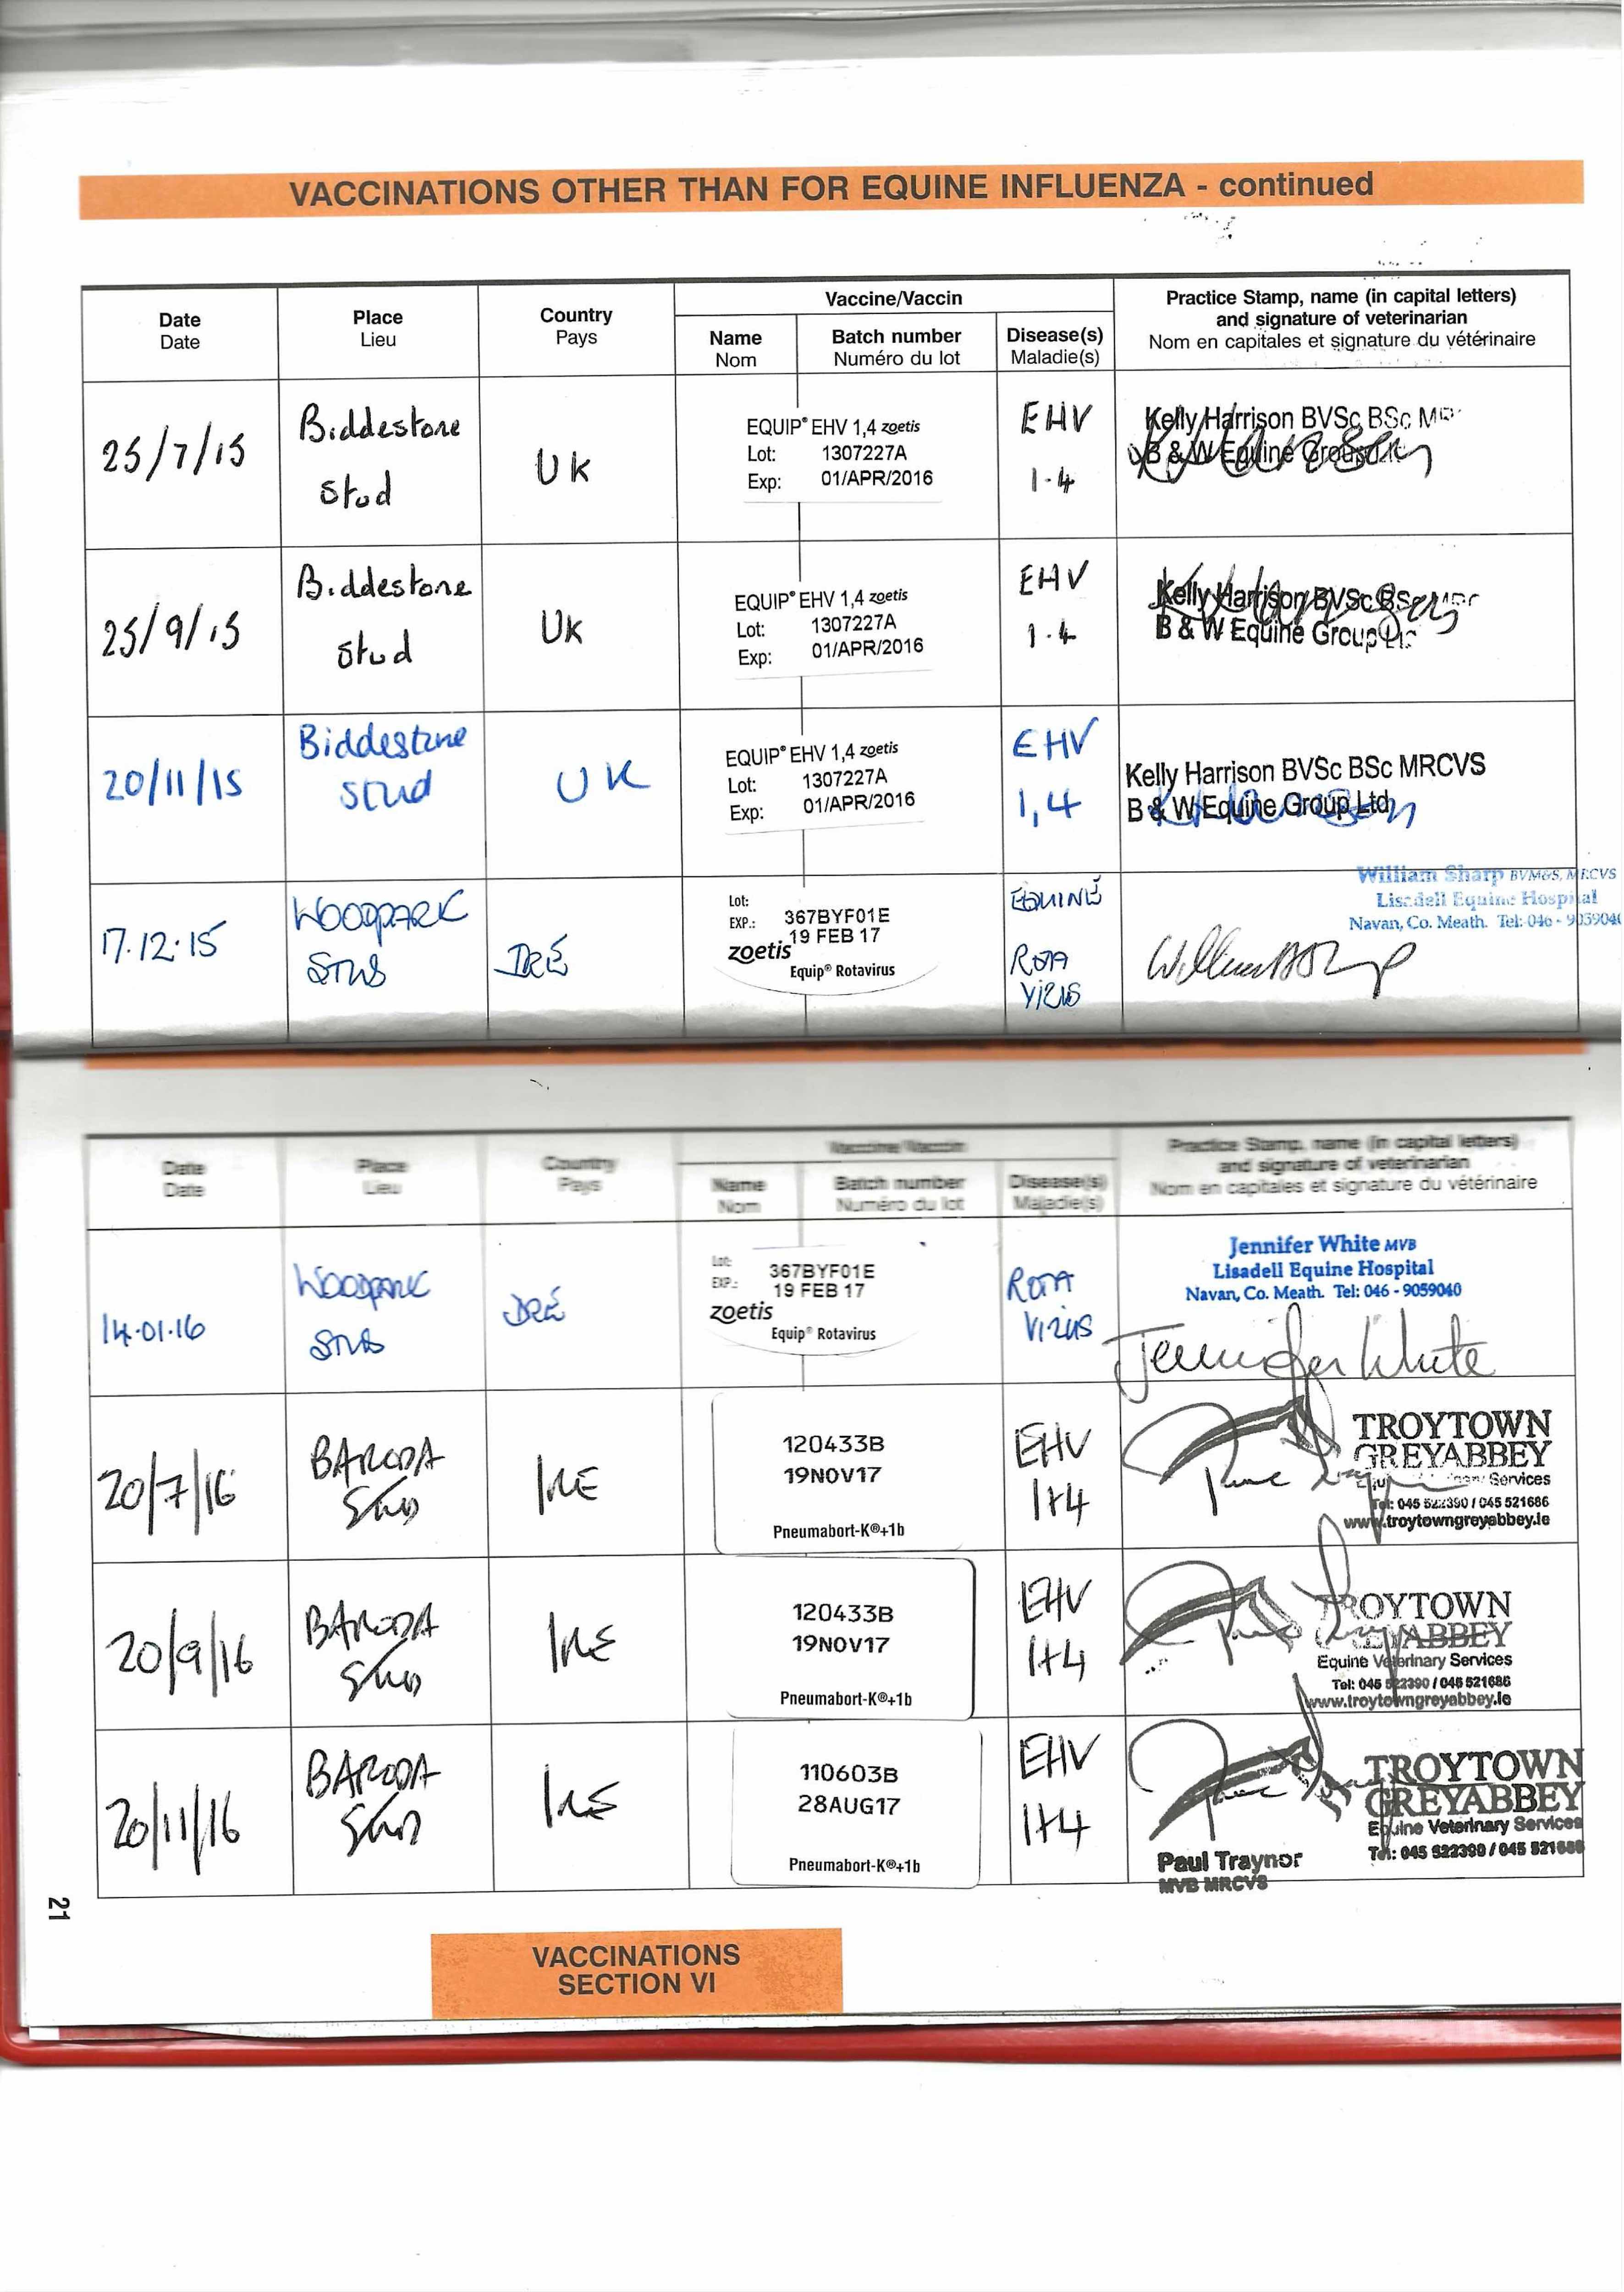 VACCINATIONS OTHER THAN FOR EQUINE INFLUENZA - continued
Date
Date
Place
Lieu
Country
Pays
Vaccine/Vaccin
Name
Nom
Batch number
Numéro du lot
Disease(s)
Maladie(s)
Practice Stamp, name (in capital letters)
and signature of veterinarian
Nom en capitales et signature du vétérinaire
25/7/15
Biddestone
Stud
UK
EQUIP® EHV 1,4 zoetis
Lot: 1307227A
Exp: 01/APR/2016
EHV
1.4
Kelly Harrison BVSc BSc
B & W Equine Group
25/9/15
Biddestone
Stud
UK
EQUIP® EHV 1,4 zoetis
Lot: 1307227A
Exp: 01/APR/2016
EHV
1.4
Kelly Harrison BVSc BSc
B & W Equine Group
20/11/15
Biddestone
Stud
UK
EQUIP® EHV 1,4 zoetis
Lot: 1307227A
Exp: 01/APR/2016
EHV
1,4
Kelly Harrison BVSc BSc MRCVS
B & W Equine Group Ltd
17.12.15
WOODPARK
STUD
IRE
Lot: 367BYF01E
EXP.: 19 FEB 17
zoetis
Equip® Rotavirus
EQUINE
ROTA
VIRUS
William Sharp BVM&S, MRCVS
Lisadell Equine Hospital
Navan, Co. Meath. Tel: 046 - 9059040
Date
Date
Place
Lieu
Country
Pays
Vaccine/Vaccin
Name
Nom
Batch number
Numéro du lot
Disease(s)
Maladie(s)
Practice Stamp, name (in capital letters)
and signature of veterinarian
Nom en capitales et signature du vétérinaire
14.01.16
WOODPARK
STUD
IRE
Lot: 367BYF01E
EXP.: 19 FEB 17
zoetis
Equip® Rotavirus
ROTA
VIRUS
Jennifer White MVB
Lisadell Equine Hospital
Navan, Co. Meath. Tel: 046 - 9059040
Jennifer White
20/7/16
BARODA
Stud
IRE
120433B
19NOV17
Pneumabort-K®+1b
EHV
1+4
TROYTOWN
GREYABBEY
Services
Tel: 045 522390 / 045 521686
www.troytowngreyabbey.ie
20/9/16
BARODA
Stud
IRE
120433B
19NOV17
Pneumabort-K®+1b
EHV
1+4
TROYTOWN
GREYABBEY
Equine Veterinary Services
Tel: 045 522390 / 045 521686
www.troytowngreyabbey.ie
20/11/16
BARODA
Stud
IRE
110603B
28AUG17
Pneumabort-K®+1b
EHV
1+4
TROYTOWN
GREYABBEY
Equine Veterinary Services
Tel: 045 522390 / 045 521686
Paul Traynor
MVB MRCVS
21
VACCINATIONS
SECTION VI